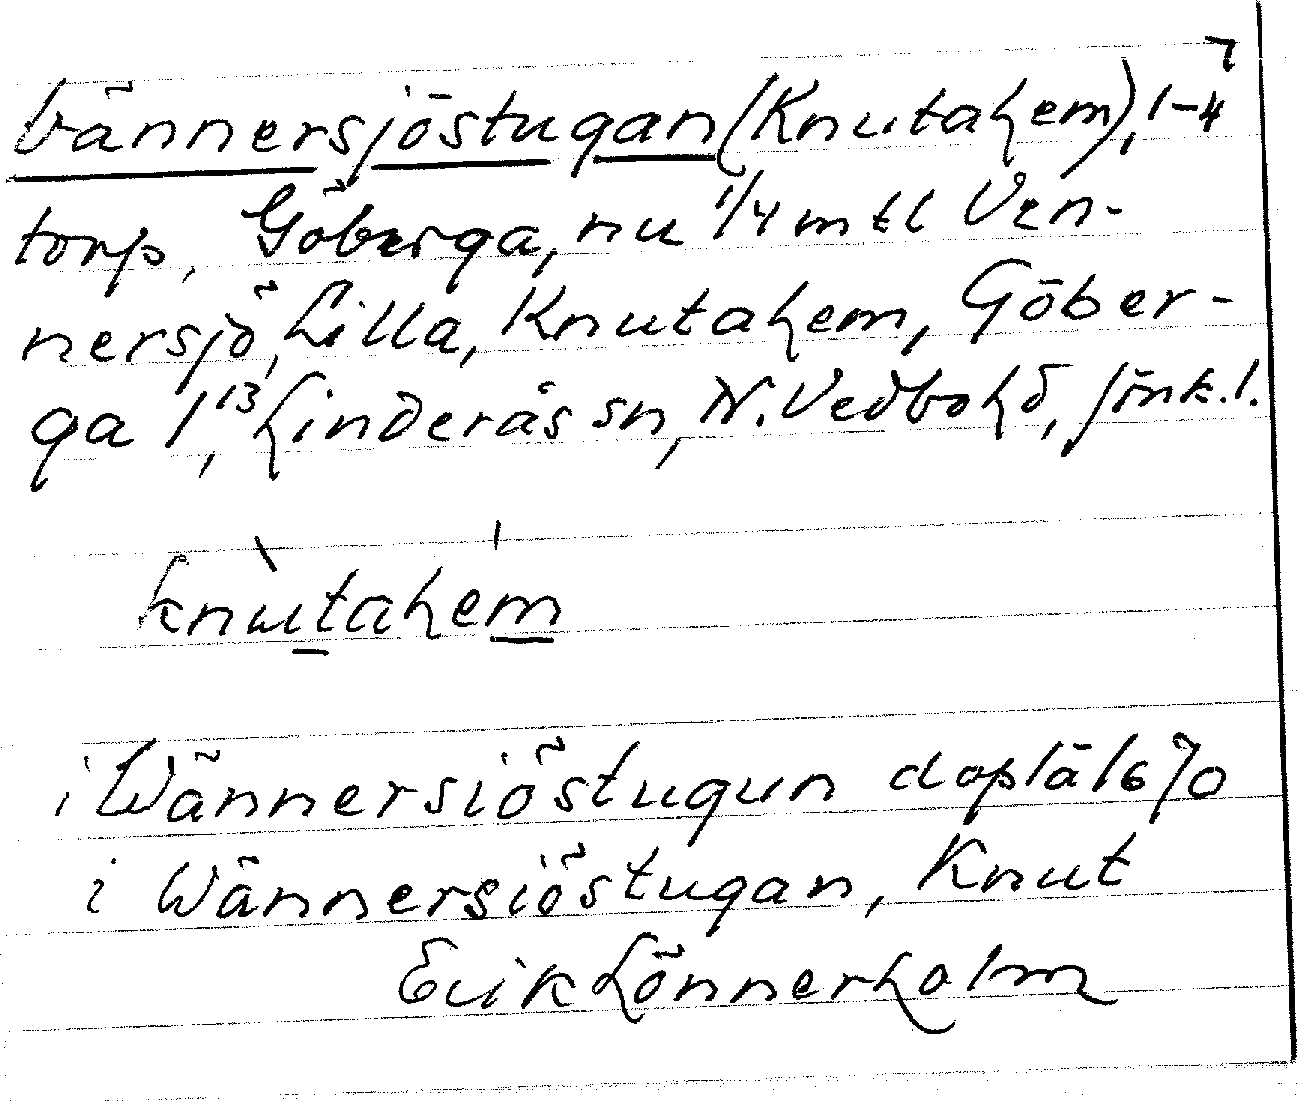 Vännersjöstugan (Knutahem), 1-4
torp, Göberga, nu 1/4 mtl Ven-
nersjö, Lilla, Knutahem, Göber-
ga 1¹³, Linderås sn, N. Vedbo hd, Jönk. l.
knutahem
i Wännersiöstugun doplä 1670
i Wännersiöstugan, Knut
Erik Lönnerholm